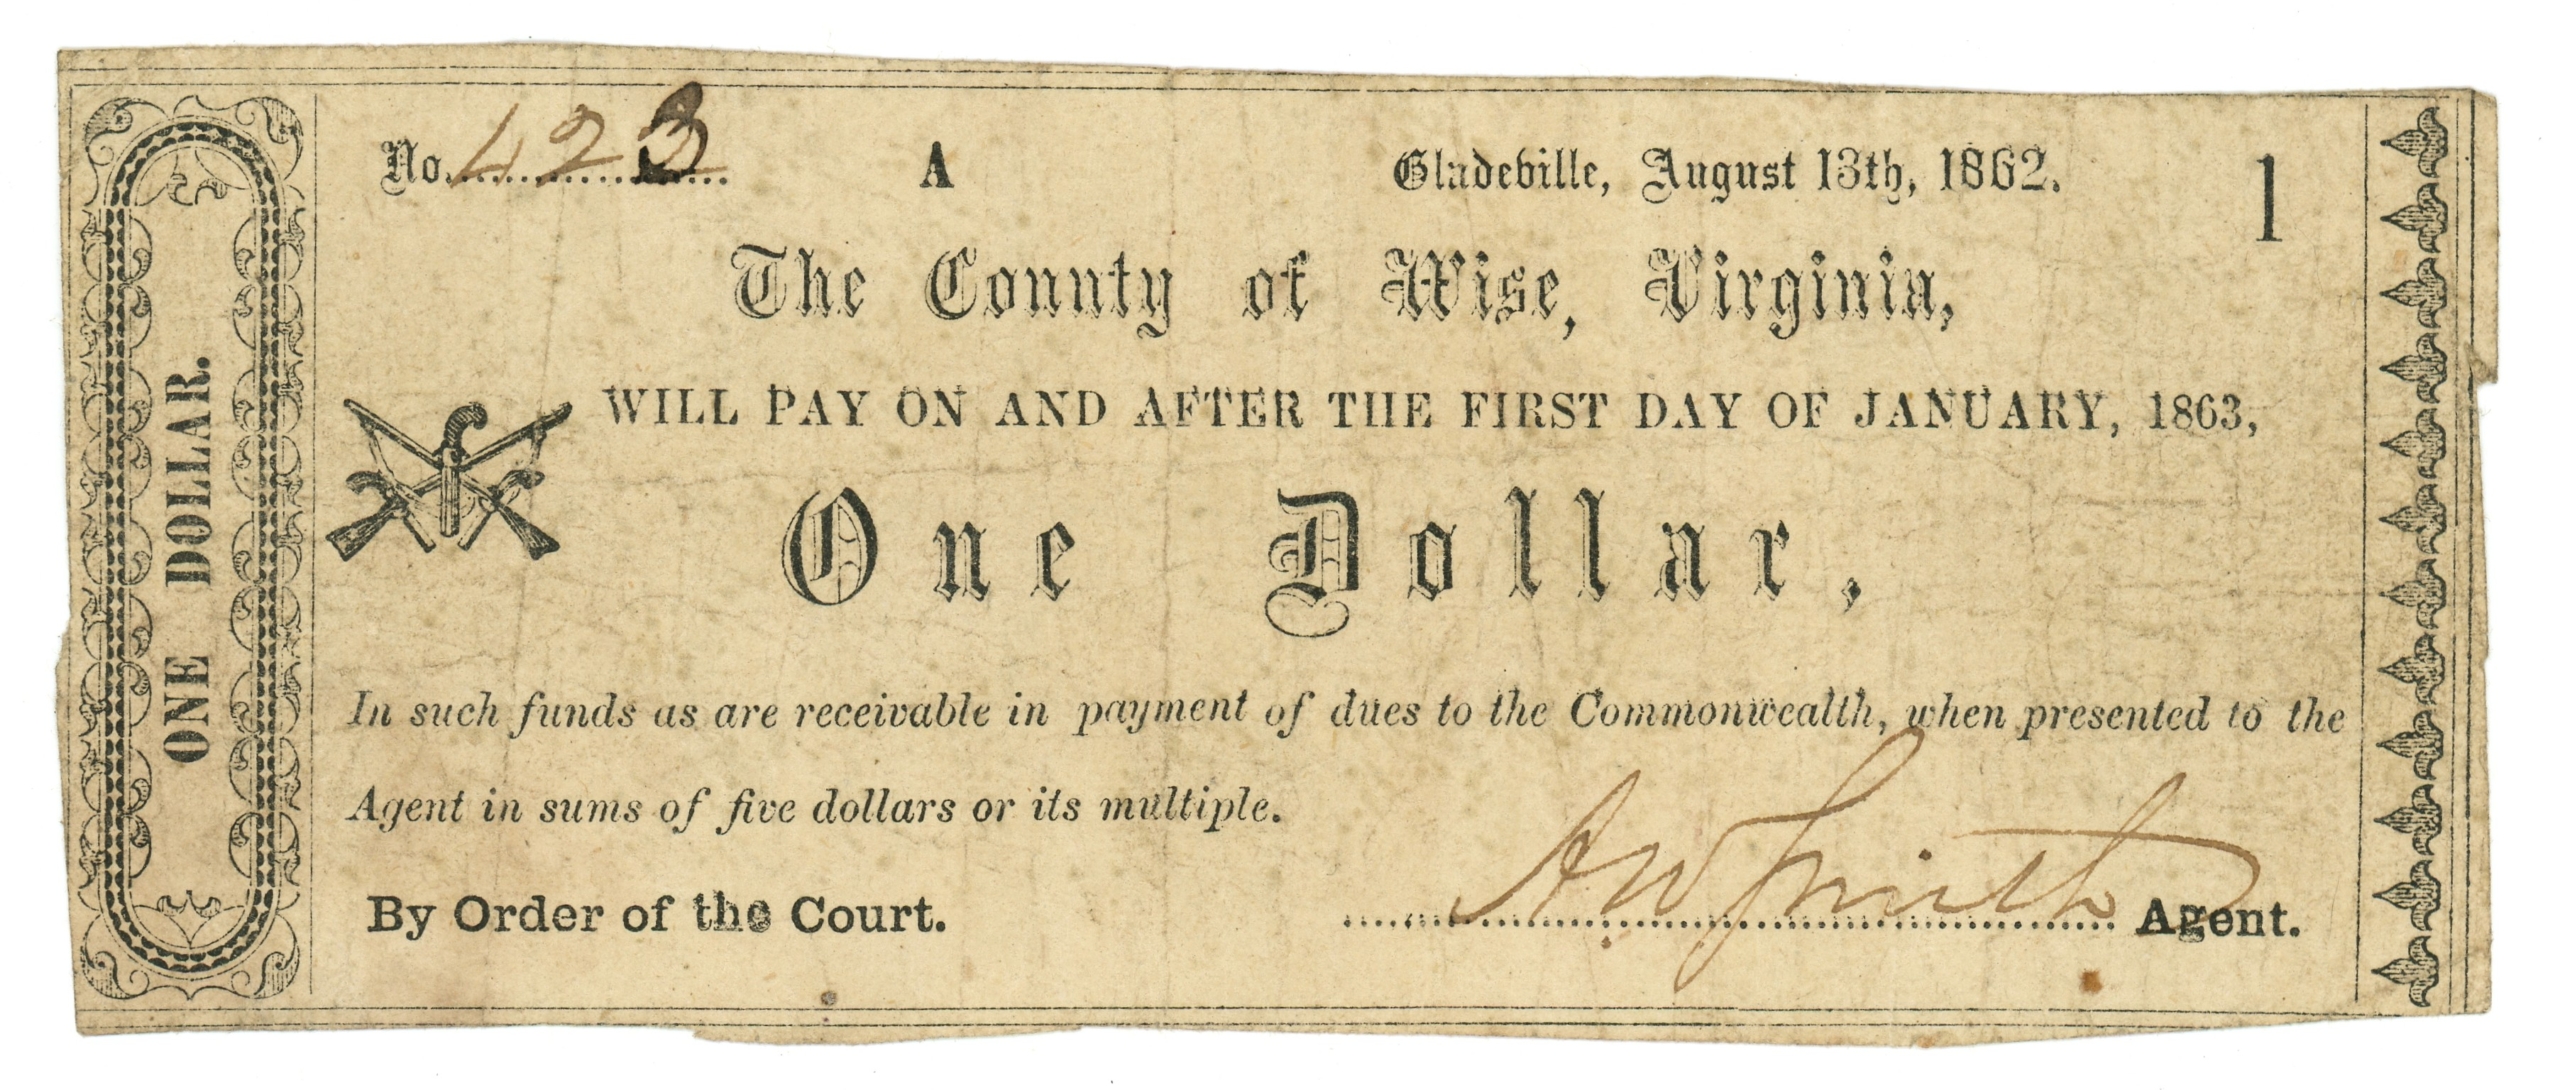 No. 423 A Gladeville, August 13th, 1862. 1
The County of Wise, Virginia,
WILL PAY ON AND AFTER THE FIRST DAY OF JANUARY, 1863,
One Dollar,
In such funds as are receivable in payment of dues to the Commonwealth, when presented to the
Agent in sums of five dollars or its multiple.
By Order of the Court. A W Smith Agent.
ONE DOLLAR.